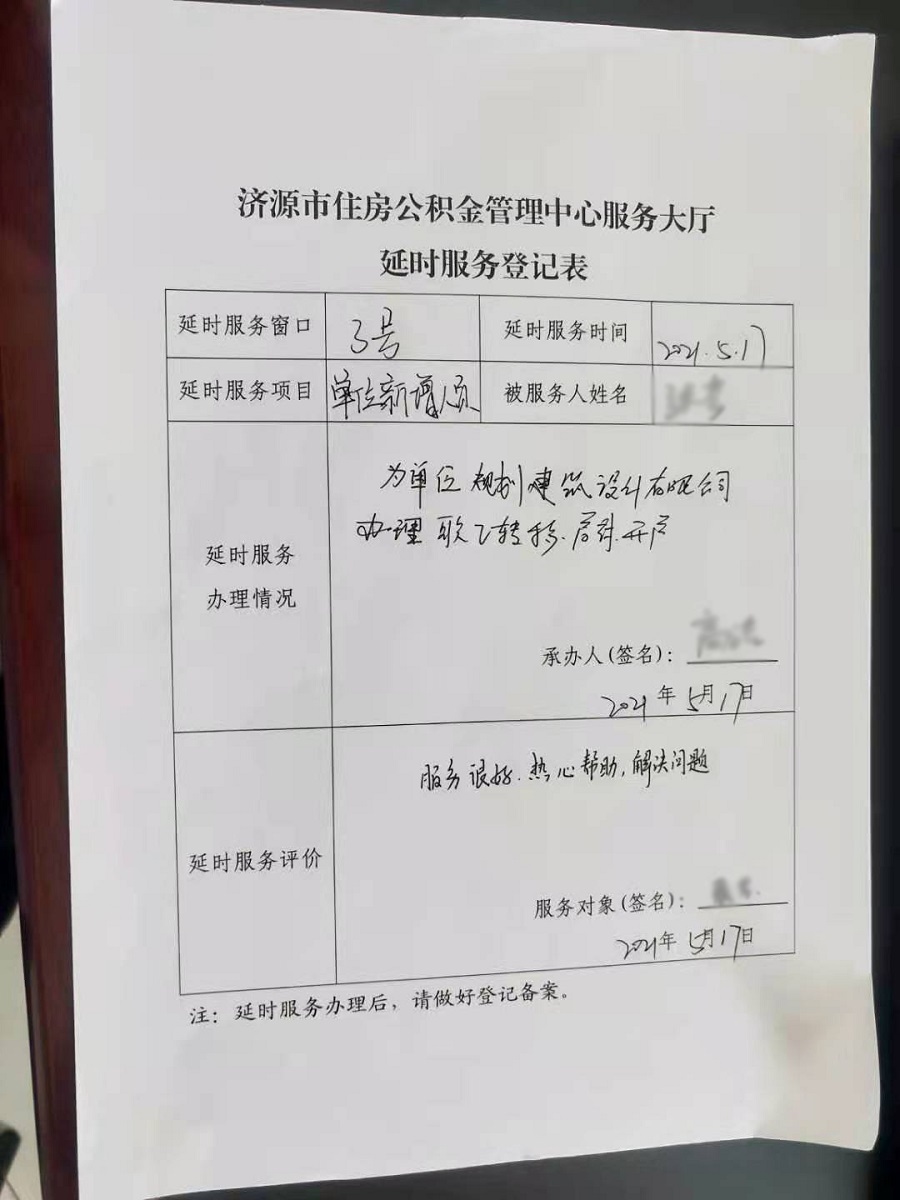 济源市住房公积金管理中心服务大厅
延时服务登记表
延时服务窗口 3号 延时服务时间 2021.5.17
延时服务项目 单位新增人员 被服务人姓名
为单位规划建筑设计有限公司
延时服务
办理情况
办理 转移.启封.开户
承办人(签名):
2021年5月17日
服务很好.热心帮助,解决问题
延时服务评价
服务对象(签名):
2021年5月17日
注:延时服务办理后,请做好登记备案。